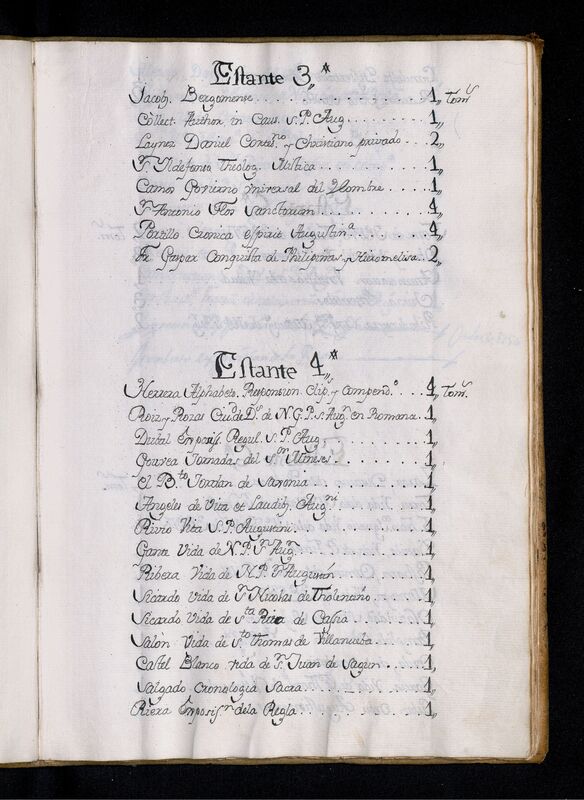 Estante 3„*
Jacob. Bergomense. . . . 1„ Tomˢ
Collect. Author in Caus. S. P. Aug . . . . 1„
Laynez Daniel Cortesⁿᵒ y Christiano privado . . 2„
Fr. Ildefonso Theolog. Mistica . . . . 1„
Camos Govierno Vniversal del Hombre . . . . 1„
Fr. Antonio Flos Sanctorum . . . . 4„
Portillo Cronica espirit. Augustinᵃ . . . . 4„
Fr. Gaspar Conquista de Philipinas, y Hieromelisa . . 2„
Estante 4„*
Herrera Alphabeto, Responsion. Clip. y Compendᵒ. . . . 4„ Tomˢ.
Roiz y Rozas Ciuᵈ. de Dˢ. de N. G. P. S. Augⁿ. en Romana . 1„
Duual Exposiſ. Regul. S. P. Aug . . . . 1„
Gouvea Jornadas del Sᵒʳ Meneses . . . . 1„
El Bᵗᵒ Jordan de Saxonia . . . . 1„
Angeles de Vita et Laudib. Augⁿⁱ . . . . 1„
Rivio Vita S. P. Augustini . . . . 1„
Gante Vida de N. P. S. Augⁿ . . . . 1„
Ribera Vida de N. P. S. Augustin . . . . 1„
Sicardo Vida de S. Nicolas de Tholentino . . . . 1„
Sicardo Vida de Sᵗᵃ Rita de Caſsia . . . . 1„
Salòn Vida de Sᵗᵒ Thomas de Villanueba . . . . 1„
Castel Blanco vida de S. Juan de Sagun . . . . 1„
Salgado Cronologia Sacra . . . . 1„
Riera Exposisⁿ de la Regla . . . . 1„